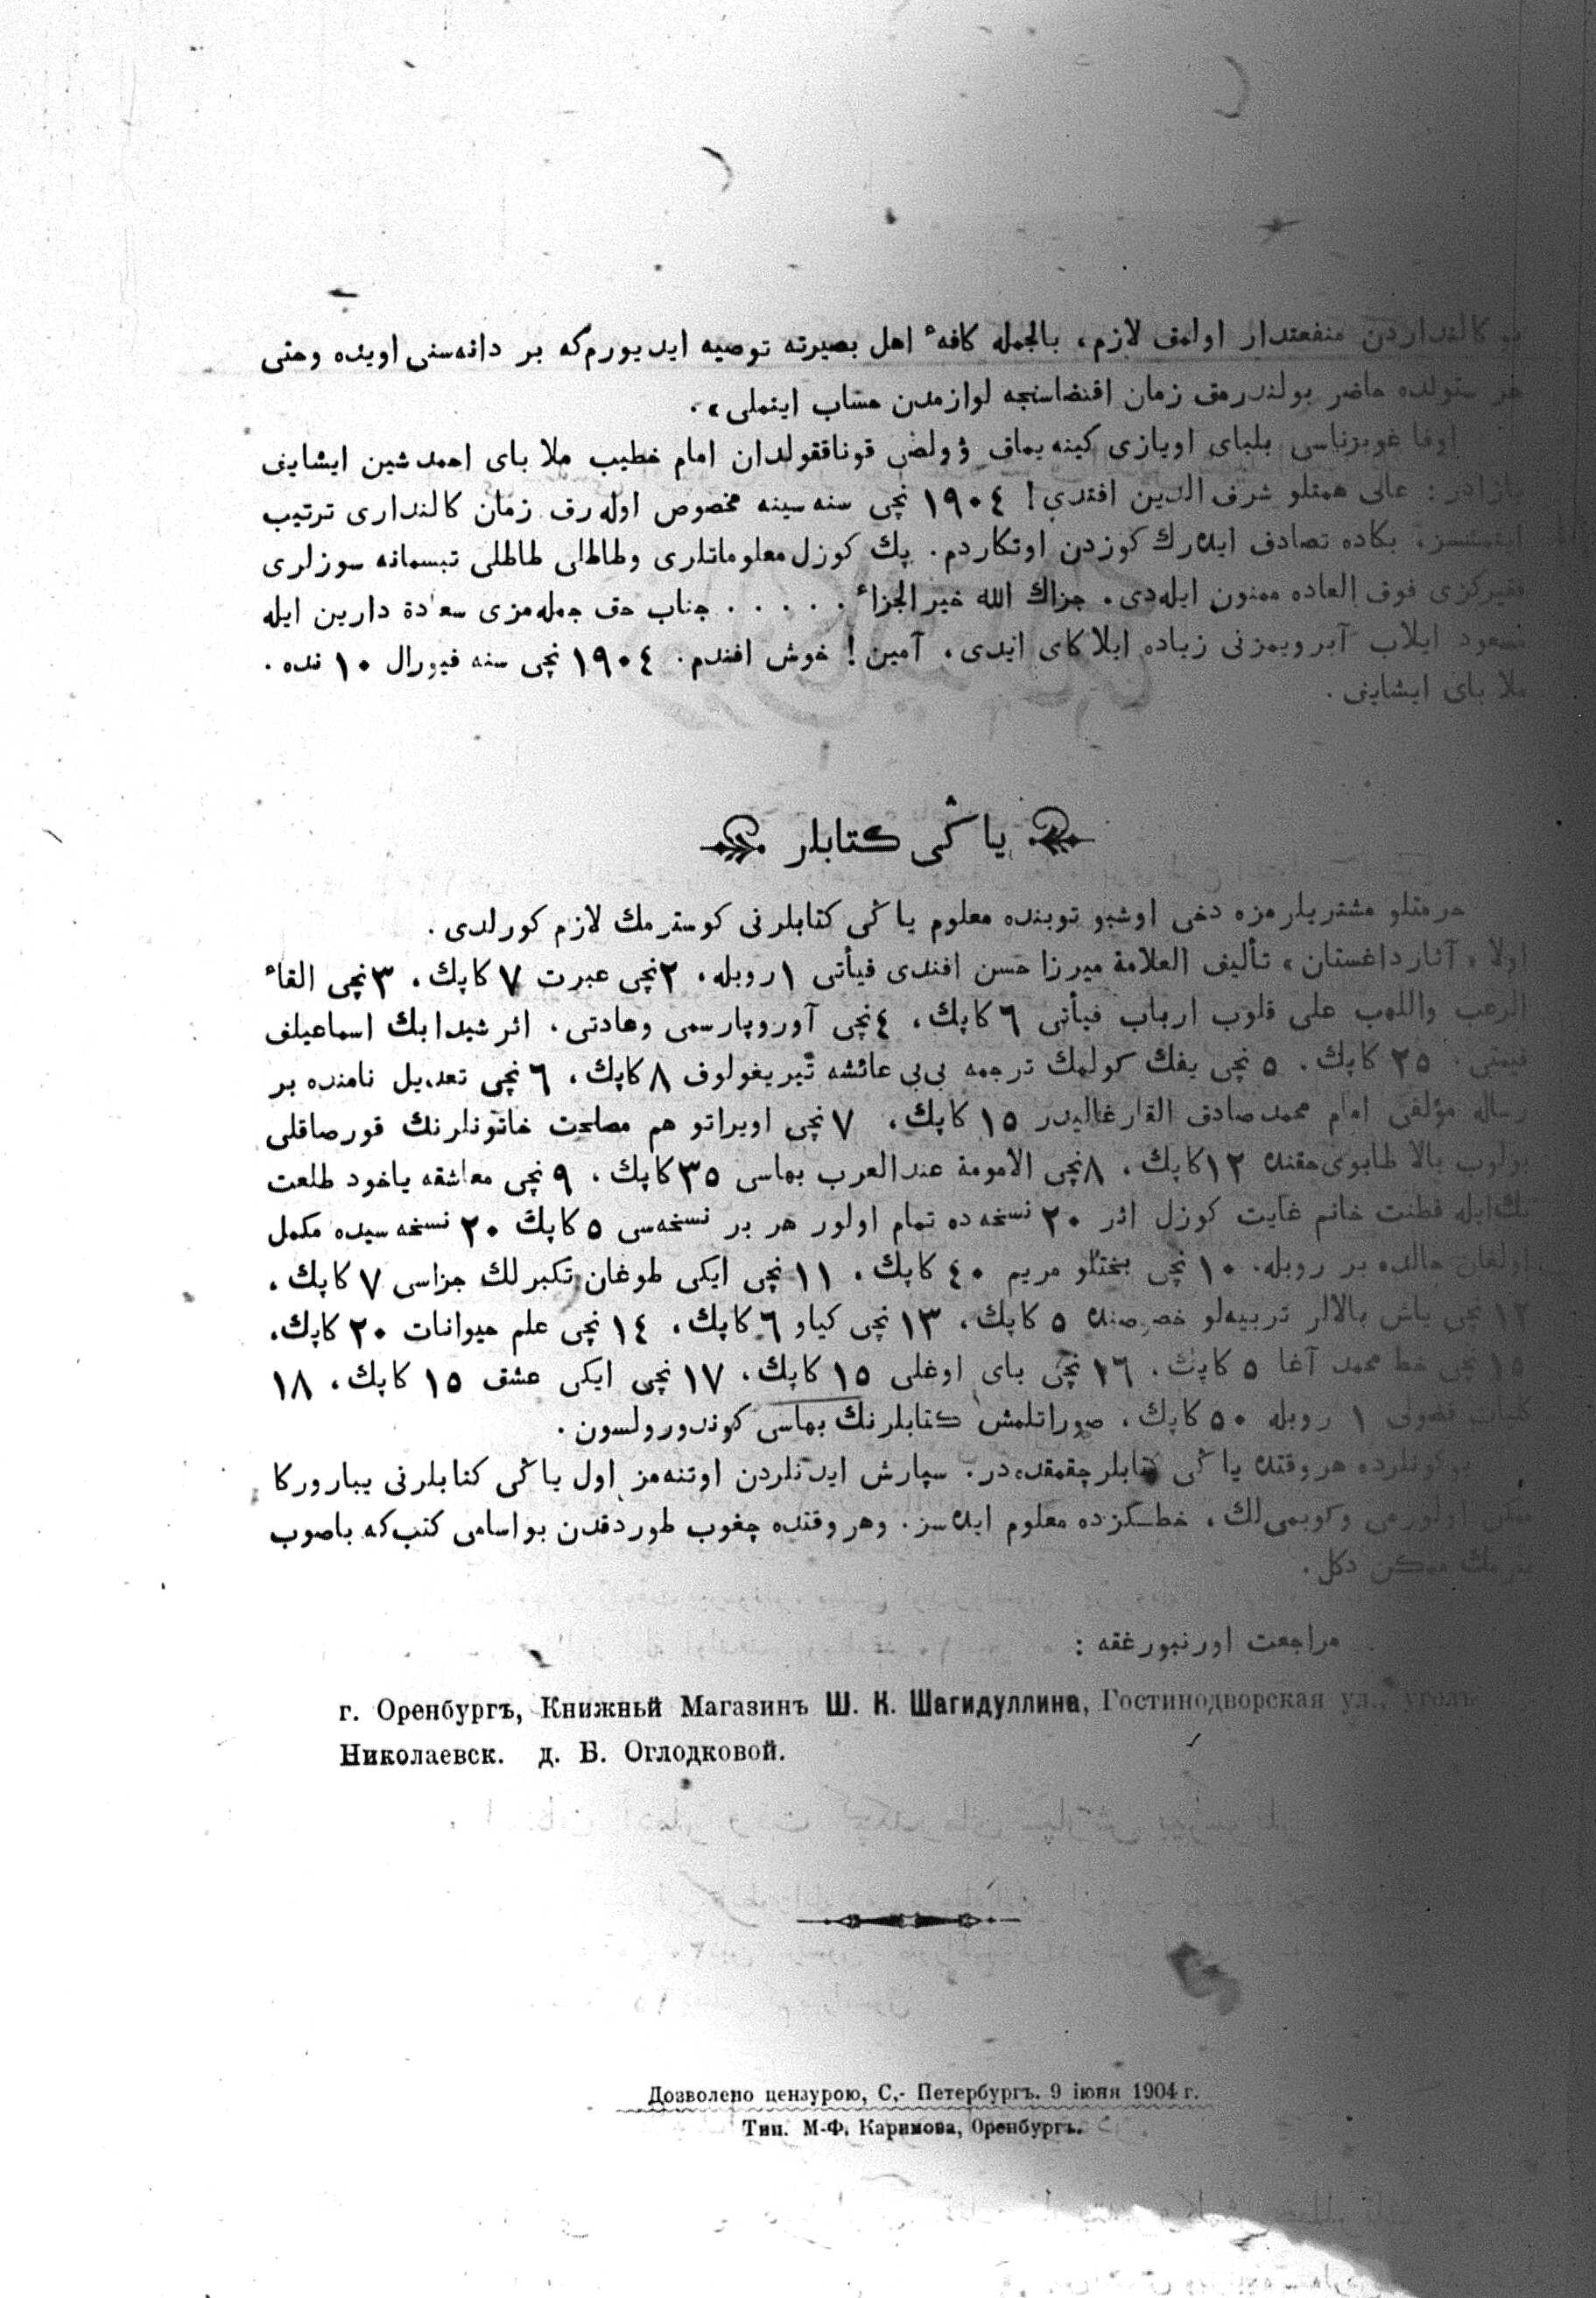 بو كالنداردن منفعتدار اولمق لازم، بالجمله كافهٔ اهل بصيرته توصيه ايديورم كه بر دانه‌سنی اويده وحتی
هر ستولده حاضر بولندرمق زمان اقتضاسنجه لوازمدن حساب ايتملی».
اوفا غوبرناسی بلبای اويازی كينه يماق ۋولصی قوناققولدان امام خطيب ملا بای احمدشين ايشاينی
يازادر: عالی همتلو شرف الدين افندی! ١٩٠٤ نچی سنه سينه مخصوص اوله‌رق زمان كالنداری ترتيب
ايتمشسز، بكاده تصادف ايده‌رك كوزدن اوتكاردم. پك كوزل معلوماتلری وطاطلی طاطلی تبسمانه سوزلری
فقيركزی فوق العاده ممنون ايله‌دی. جزاك الله خير الجزاء . . . . . جناب حق جمله‌مزی سعادة دارين ايله
مسعود ايلاب آبرويمزنی زياده ايلاكای ايدی، آمين! خوش افندم. ١٩٠٤ نچی سنه فيورال ١٠ نده.
ملا بای ايشاينی.
ياڭی كتابلر
حرمتلو مشتريلرمزه دخی اوشبو توبنده معلوم ياڭی كتابلرنی كوسترمك لازم كورلدی.
اولا «آثار داغستان» تأليف العلامة ميرزا حسن افندی فيأتی ١ روبله، ٢ نچی عبرت ٧ كاپك، ٣ نچی القاء
الرعب واللهب علی قلوب ارباب فيأتی ٦ كاپك، ٤ نچی آوروپا رسمی وعادتی، اثر شيدابك اسماعيلف
قيمتی ٢٥ كاپك، ٥ نچی يفك كولمك ترجمه بی‌بی عائشه تيريغولوف ٨ كاپك، ٦ نچی تعديل نامنده بر
رساله مؤلفی امام محمدصادق القارغاليدر ١٥ كاپك، ٧ نچی اويراتو هم مصلحت خاتونلرنك قورصاقلی
بولوب بالا طابوی حقنده ١٢ كاپك، ٨ نچی الامومة عندالعرب بهاسی ٣٥ كاپك، ٩ نچی معاشقه ياخود طلعت
بك ايله فطنت خانم غايت كوزل اثر ٢٠ نسخه ده تمام اولور هر بر نسخه‌سی ٥ كاپك ٢٠ نسخه سيده مكمل
اولغان حالده بر روبله. ١٠ نچی بختلو مريم ٤٠ كاپك، ١١ نچی ايكی طوغان تكبرلك جزاسی ٧ كاپك،
١٢ نچی ياش بالالر تربيه‌لو خصوصنده ٥ كاپك، ١٣ نچی كياو ٦ كاپك، ١٤ نچی علم حيوانات ٢٠ كاپك،
١٥ نچی خط محمد آغا ٥ كاپك، ١٦ نچی بای اوغلی ١٥ كاپك، ١٧ نچی ايكی عشق ١٥ كاپك، ١٨
كليات فضولی ١ روبله ٥٠ كاپك، صوراتلمش كتابلرنك بهاسی كوندورولسون.
بو كونلرده هر وقتده ياڭی كتابلر چقمقده‌در. سپارش ايدنلردن اوتنه‌مز اول ياڭی كتابلرنی يبارورکا
ممكن اولورمی وكوبمی‌لك، خطـكزده معلوم ايده‌سز. وهر وقتده چغوب طوردقدن بو اسامی كتب‌كه باصوب
بيرمك ممكن دكل.
مراجعت اورنبورغقه:
г. Оренбургъ, Книжный Магазинъ Ш. К. Шагидуллина, Гостинодворская ул., уголъ
Николаевск. д. Б. Оглодковой.
Дозволено цензурою, С,- Петербургъ. 9 іюня 1904 г.
Тип. М-Ф. Каримова, Оренбургъ.